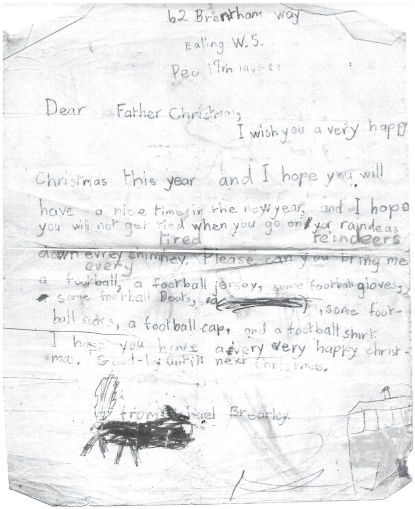 62 Brentham Way
Ealing W.5.
Dec 17th
Dear Father Christmas,
I wish you a very happy
Christmas this year and I hope you will
have a nice time in the new year, and I hope
you will not get tied when you go on your raindeas
tired reindeers
down evrey chimney. Please can you bring me
every
a football, a football jersey, some football gloves,
some football boots, some foot-
ball socks, a football cap, and a football shirt.
I hope you have a very very happy christ-
mas. Good-by untill next Christmas.
from Michael Brearley.